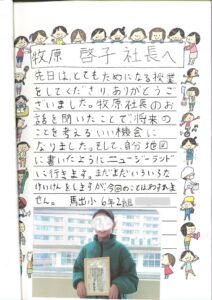 牧原 啓子社長へ
先日は、とてもためになる授業
をしてくださりありがとうご
ざいました。牧原社長のお
話を聞いたことで、将来の
ことを考えるいい機会に
なりました。そして、自分地図
に書いたようにニュージーランド
に行きます。まだまだいろいろな
けいけんをしますが、今回のことはわすれま
せん。 馬出小6年2組